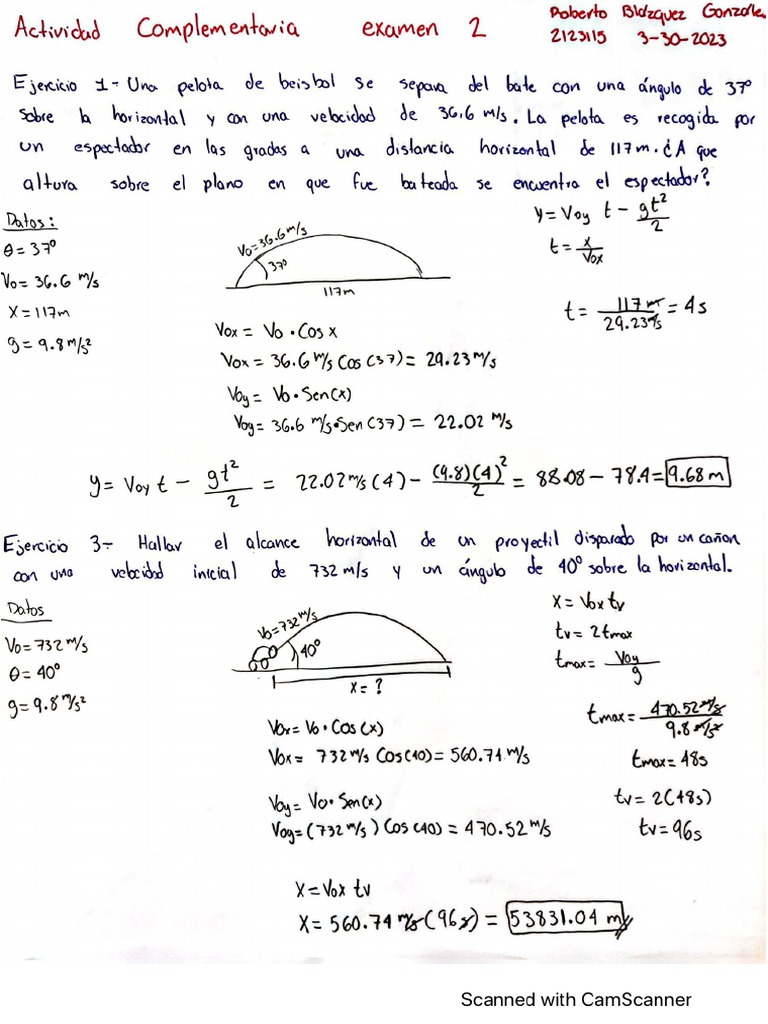 Actividad Complementaria examen 2
Roberto Blázquez Gonzalez
2123115 3-30-2023
Ejercicio 1- Una pelota de beisbol se separa del bate con una ángulo de 37°
sobre la horizontal y con una velocidad de 36,6 m/s. La pelota es recogida por
un espectador en las gradas a una distancia horizontal de 117 m. ¿A que
altura sobre el plano en que fue bateada se encuentra el espectador?
Datos:
θ = 37°
Vo = 36.6 m/s
X = 117m
g = 9.8 m/s²
Vo = 36.6 m/s
37°
117m
y = Voy t - gt²/2
t = x/Vox
t = 117 m/29.23 m/s = 4s
Vox = Vo · Cos x
Vox = 36.6 m/s Cos (37) = 29.23 m/s
Voy = Vo · Sen(x)
Voy = 36.6 m/s · Sen (37) = 22.02 m/s
y = Voy t - gt²/2 = 22.02 m/s (4) - (9.8)(4)²/2 = 88.08 - 78.4 = 9.68 m
Ejercicio 3- Hallar el alcance horizontal de un proyectil disparado por un cañon
con una velocidad inicial de 732 m/s y un ángulo de 40° sobre la horizontal.
Datos
Vo = 732 m/s
θ = 40°
g = 9.8 m/s²
Vo = 732 m/s
40°
X = ?
X = Vox tv
tv = 2tmax
tmax = Voy/g
tmax = 470.52 m/s/9.8 m/s²
tmax = 48s
tv = 2(48s)
tv = 96s
Vox = Vo · Cos (x)
Vox = 732 m/s Cos (40) = 560.74 m/s
Voy = Vo · Sen(x)
Voy = (732 m/s) Cos (40) = 470.52 m/s
X = Vox tv
X = 560.74 m/s (96s) = 53831.04 m
Scanned with CamScanner